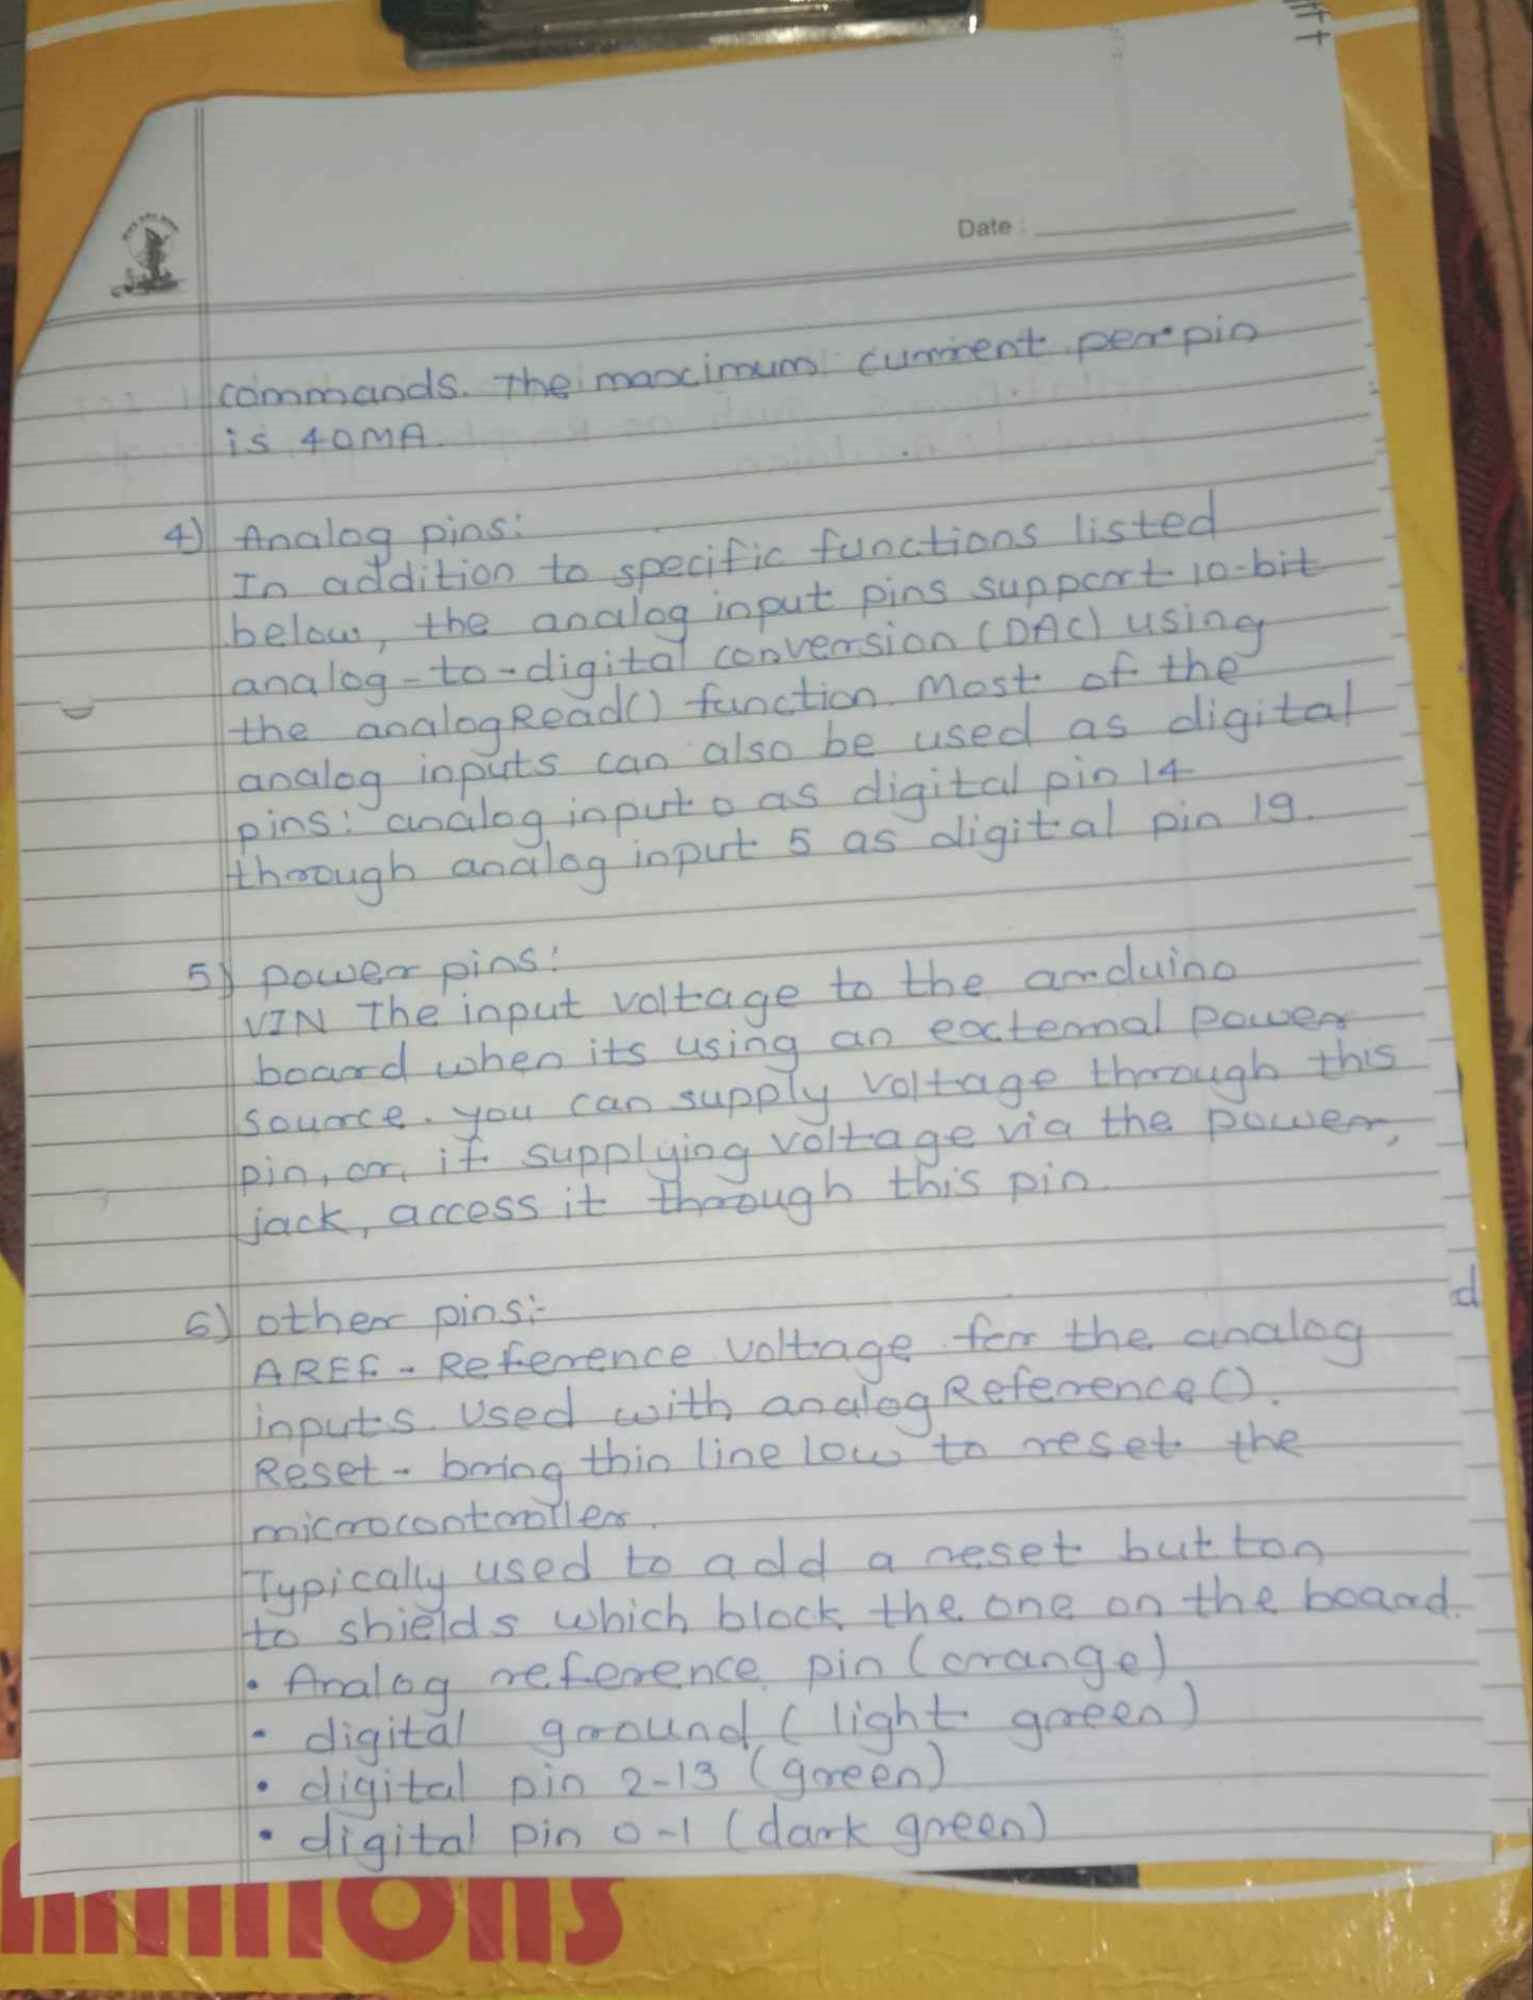 Date :
commands. The maximum current per pin
is 40MA.
4) Analog pins:
In addition to specific functions listed
below, the analog input pins support 10-bit
analog-to-digital conversion (DAC) using
the analogRead() function. Most of the
analog inputs can also be used as digital
pins: analog input 0 as digital pin 14
through analog input 5 as digital pin 19.
5) power pins:
VIN The input voltage to the arduino
board when its using an external power
source. you can supply voltage through this
pin, or, if supplying voltage via the power,
jack, access it through this pin.
6) other pins:-
AREF - Reference voltage for the analog
inputs. Used with analogReference().
Reset - bring thin line low to reset the
microcontroller.
Typically used to add a reset button
to shields which block the one on the board.
• Analog reference pin (orange)
• digital ground (light green)
• digital pin 2-13 (green)
• digital pin 0-1 (dark green)
d